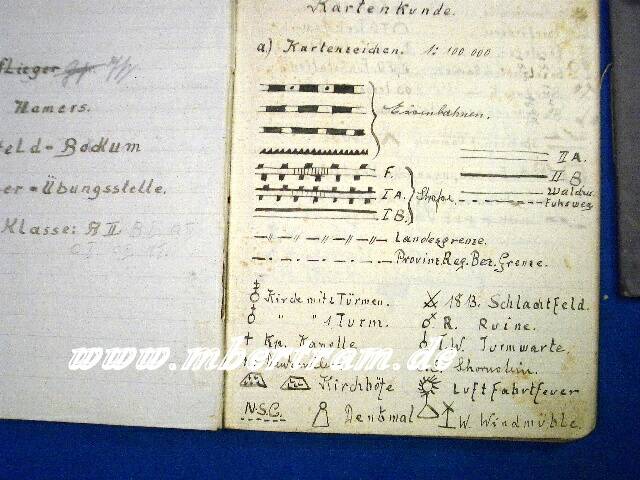 Flieger
Hamers.
feld-Bockum
er-Übungsstelle.
Klasse: A II
Kartenkunde.
a) Kartenzeichen. 1:100 000
Eisenbahnen.
II A.
II B.
Waldw.
Fuhsweg
F.
I A.
I B.
Straßen
Landesgrenze.
Provinz.Reg.Bez.Grenze.
Kirche mit 2 Türmen.
" " 1 Turm.
Kp. Kapelle
Kirchhöfe
N.S.G.
Denkmal
1813. Schlachtfeld.
R. Ruine.
T.W. Turmwarte
Shornstein.
Luftfahrtfeuer
W. Windmühle.
www.mbertram.de